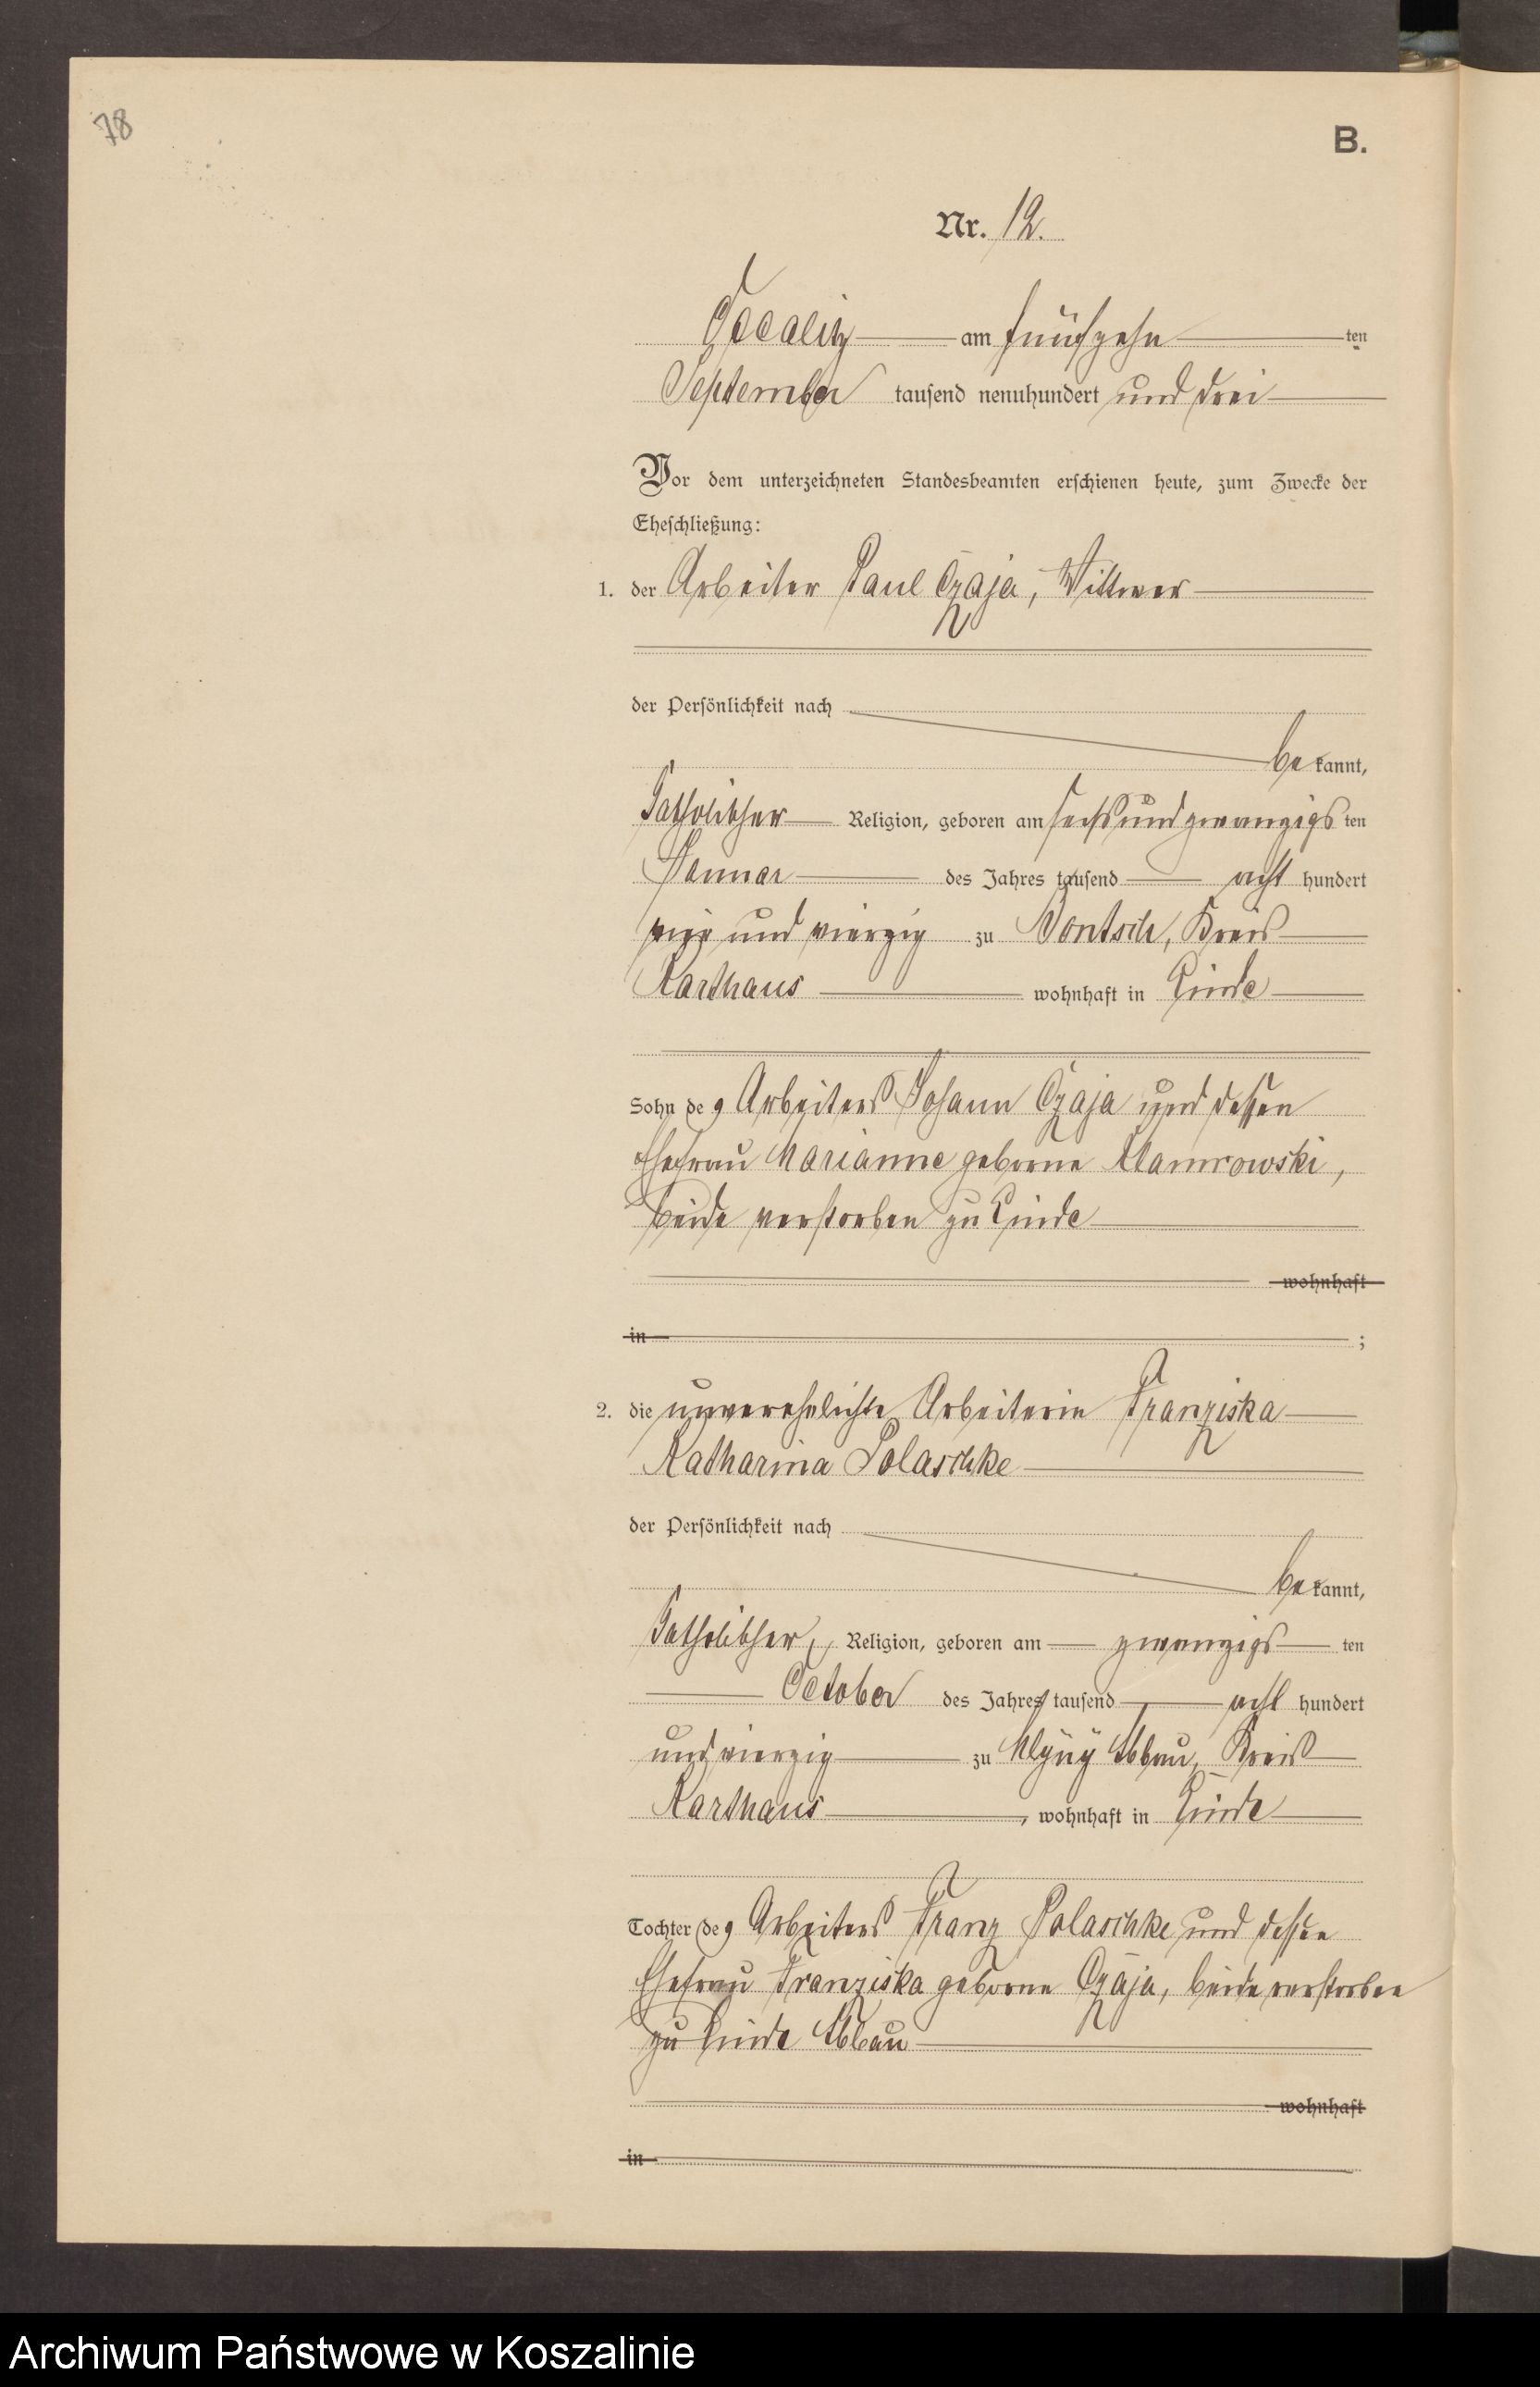 78
B.
Nr. 12.
Occalitz am fünfzehn ten
September tausend neunhundert und drei
Vor dem unterzeichneten Standesbeamten erschienen heute, zum Zwecke der
Eheschließung:
1. der Arbeiter Paul Czaja, Wittwer
der Persönlichkeit nach
be kannt,
katholischer Religion, geboren am sechsundzwanzigs ten
Januar des Jahres tausend acht hundert
vier und vierzig zu Bontsch, Kreis
Karthaus wohnhaft in Linde
Sohn des Arbeiters Johann Czaja und dessen
Ehefrau Marianne geborne Klamrowski,
beide verstorben zu Linde
wohnhaft
in ;
2. die unverehelichte Arbeiterin Franziska
Katharina Polaschke
der Persönlichkeit nach
be kannt,
katholischer Religion, geboren am zwanzigs ten
October des Jahres tausend acht hundert
und vierzig zu Abbau, Kreis
Karthaus, wohnhaft in Linde
Tochter des Arbeiters Franz Polaschke und dessen
Ehefrau Franziska geborne Czaja, beide verstorben
zu Linde Abbau
wohnhaft
in
Archiwum Państwowe w Koszalinie